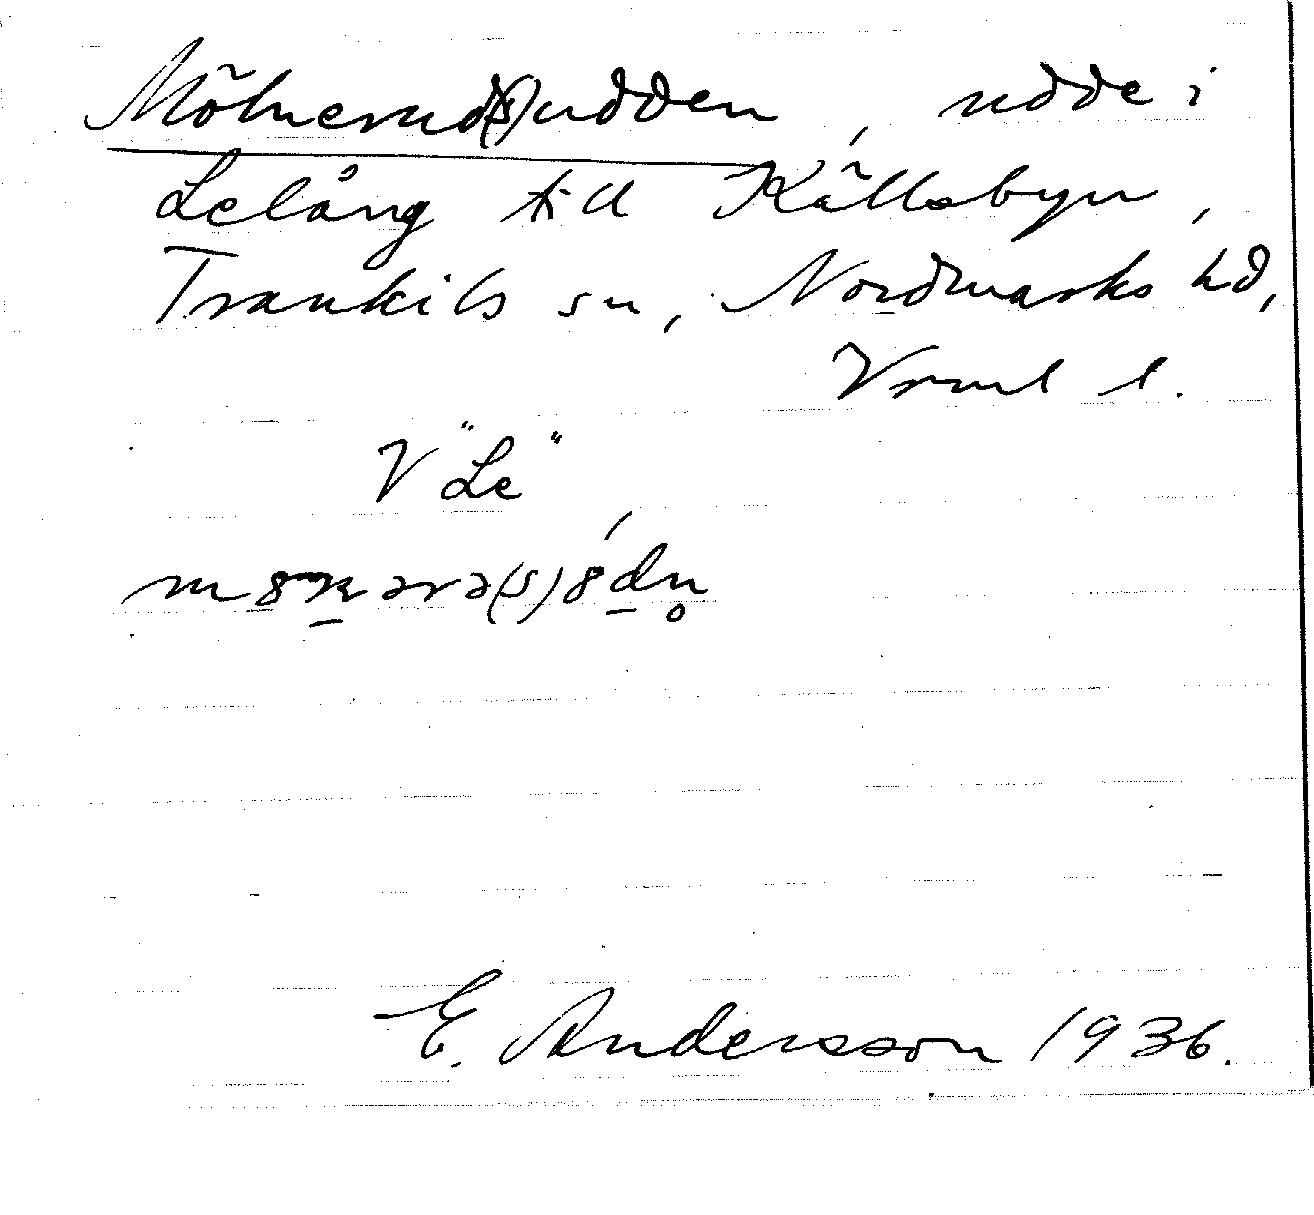 Mölnerud(s)udden, udde i
Lelång till Källsbyn,
Trankils sn, Nordmarks hd,
Vrml l.
V "Le"
E. Andersson 1936.